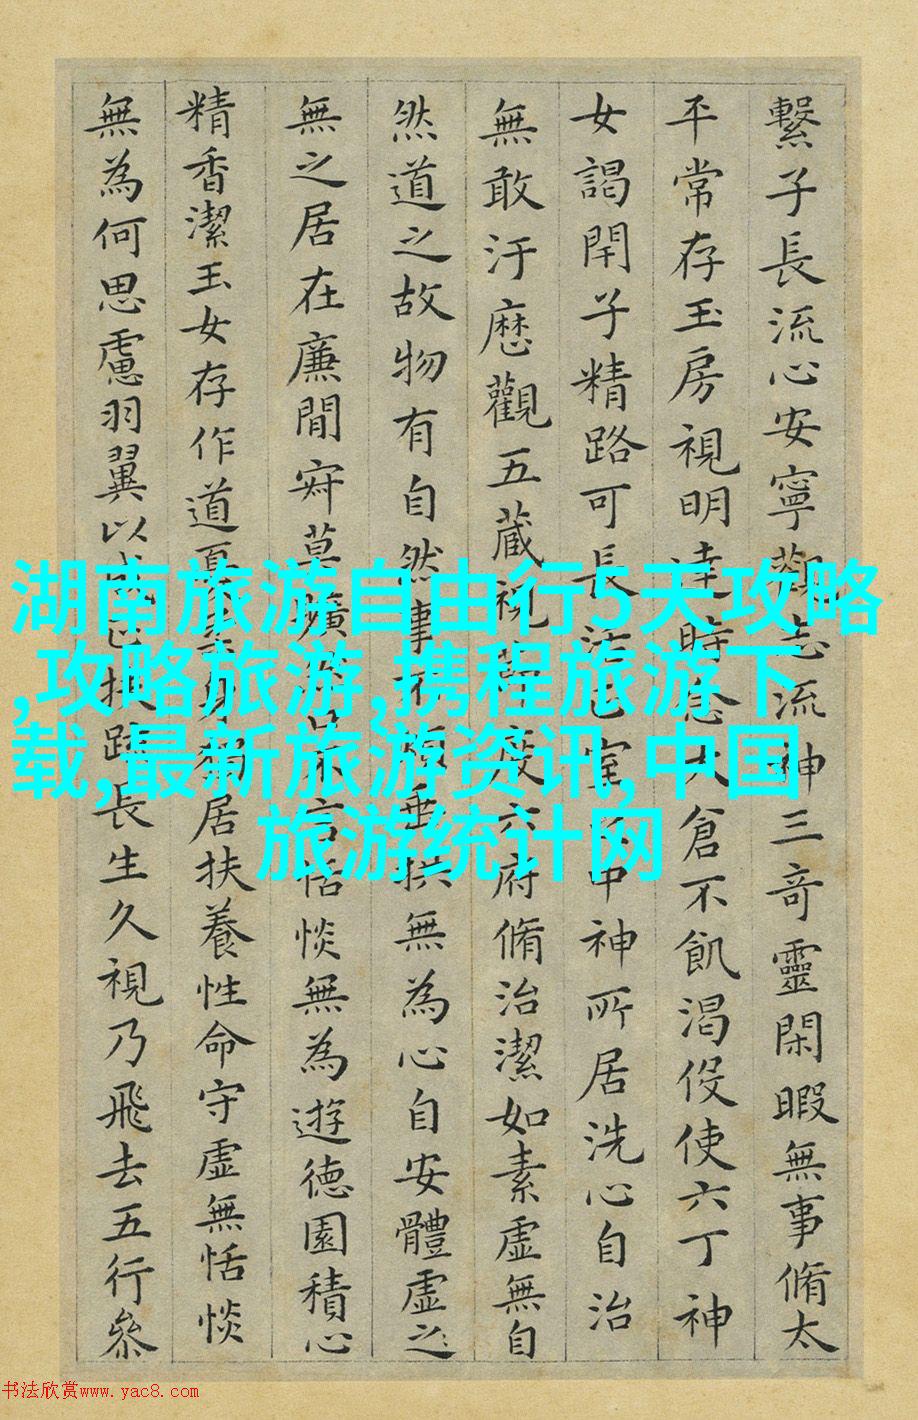 繫子長流心安寧觀志流神三奇靈閑暇無事脩太
平常存玉房視明達時念大倉不飢渴伇使六丁神
女謁閇子精路可長活正室之中神所居洗心自治
無敢汙歷觀五藏視節度六府脩治潔如素虛無自
然道之故物有自然事不煩垂拱無為心自安體虛之
無之居在廉間寂莫曠然口不言恬惔無為遊德園積心
精香潔玉女存作道憂柔身獨居扶養性命守虛無恬惔
無為何思慮羽翼以成正扶疏長生久視乃飛去五行參
湖南旅游自由行5天攻略
,攻略旅游,携程旅游下
载,最新旅游资讯,中国
旅游统计网
书法欣赏www.yac8.com